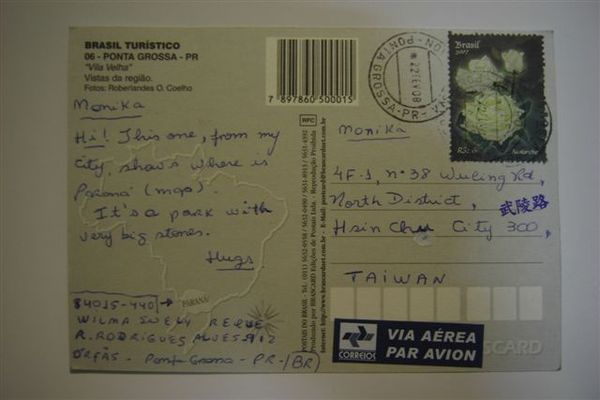 BRASIL TURÍSTICO
06 - PONTA GROSSA - PR
"Vila Velha"
Vistas da região.
Fotos: Roberlandes O. Coelho
7 897860 500015
Monika
Hi! This one, from my
city, shows where is
Paraná (map).
It's a park with
very big stones.
Hugs
84015-440
PARANÁ
WILMA SUELY REQUE
R. RODRIGUES ALVES
ORFÃS - Ponta Grossa - PR - (BR)
PORTAIS DO BRASIL - Tel.: (011)
Produzido por BRASCARD Edições de Postais Ltda. - Reprodução Proibida
Internet: http://www.brascard.com.br - E-Mail:
WPC
PONTA GROSSA - PR
22 FEV 08
Brasil
2007
Monika
4F-1, nº 38 Wuling Rd,
North District,
武陵路
Hsin Chu City 300,
TAIWAN
CORREIOS
VIA AÉREA
PAR AVION